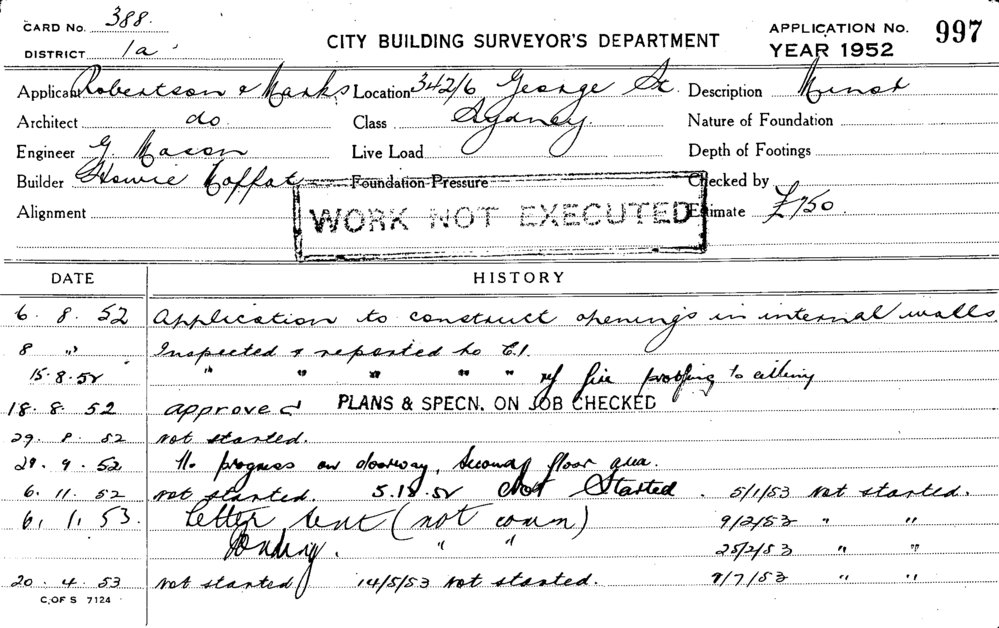 CARD No. 388. CITY BUILDING SURVEYOR'S DEPARTMENT APPLICATION No. 997
DISTRICT 1a YEAR 1952
Applicant Robertson & Marks Location 342/6 George St. Description Minor
Architect do Class Sydney. Nature of Foundation
Engineer G. Macon Live Load Depth of Footings
Builder Howie Moffat Foundation Pressure Checked by
Alignment WORK NOT EXECUTED Estimate £750.
DATE HISTORY
6. 8. 52 Application to construct openings in internal walls
8 " Inspected & reported to C.I.
15.8.52 " " " " " ref fire proofing to ceiling
18. 8. 52 approved PLANS & SPECN. ON JOB CHECKED
29. 8. 52 not started.
29. 9. 52 No progress on doorway, floor area.
6. 11. 52 not started. 5.12.52 Not Started. 5/1/53 not started.
6. 1. 53. letter sent (not comm) 9/2/53 " "
Pending. " " 25/2/53 " "
20. 4. 53 not started 14/5/53 not started. 9/7/53 " "
C. OF S 7124